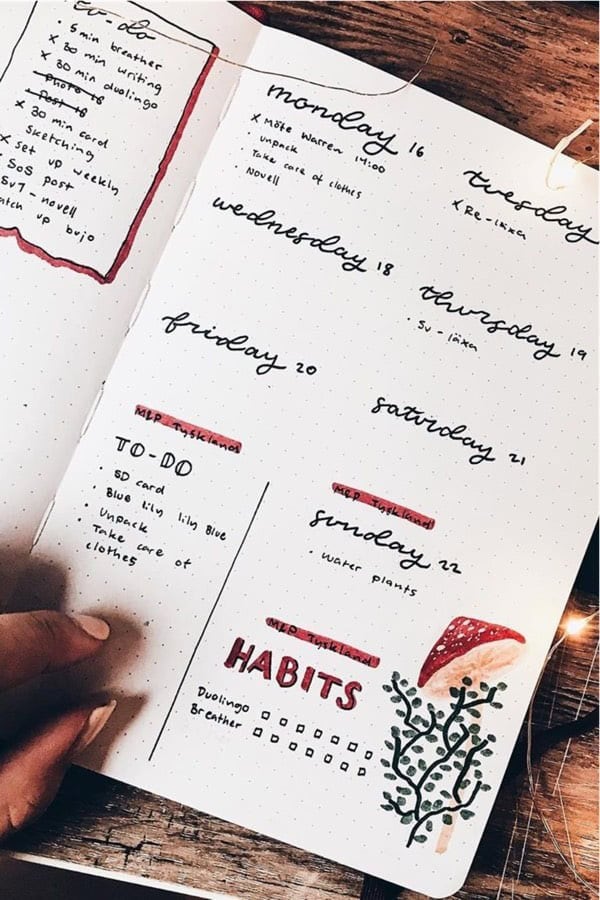 to-do
5 min breather
x 30 min writing
x 30 min duolingo
Photo IG
Post IG
x 30 min card
sketching
x set up weekly
SoS post
Sv7 - novell
catch up bujo
monday 16
x Möte Warren 14:00
• unpack
• Take care of clothes
• Novell
tuesday
x Re-läxa
wednesday 18
thursday 19
• Sv-läxa
friday 20
MLP Tyskland
saturday 21
MLP Tyskland
TO-DO
• SD card
• Blue lily lily Blue
• Unpack
• Take care of
clothes
sunday 22
• water plants
MLP Tyskland
HABITS
Duolingo
Breather